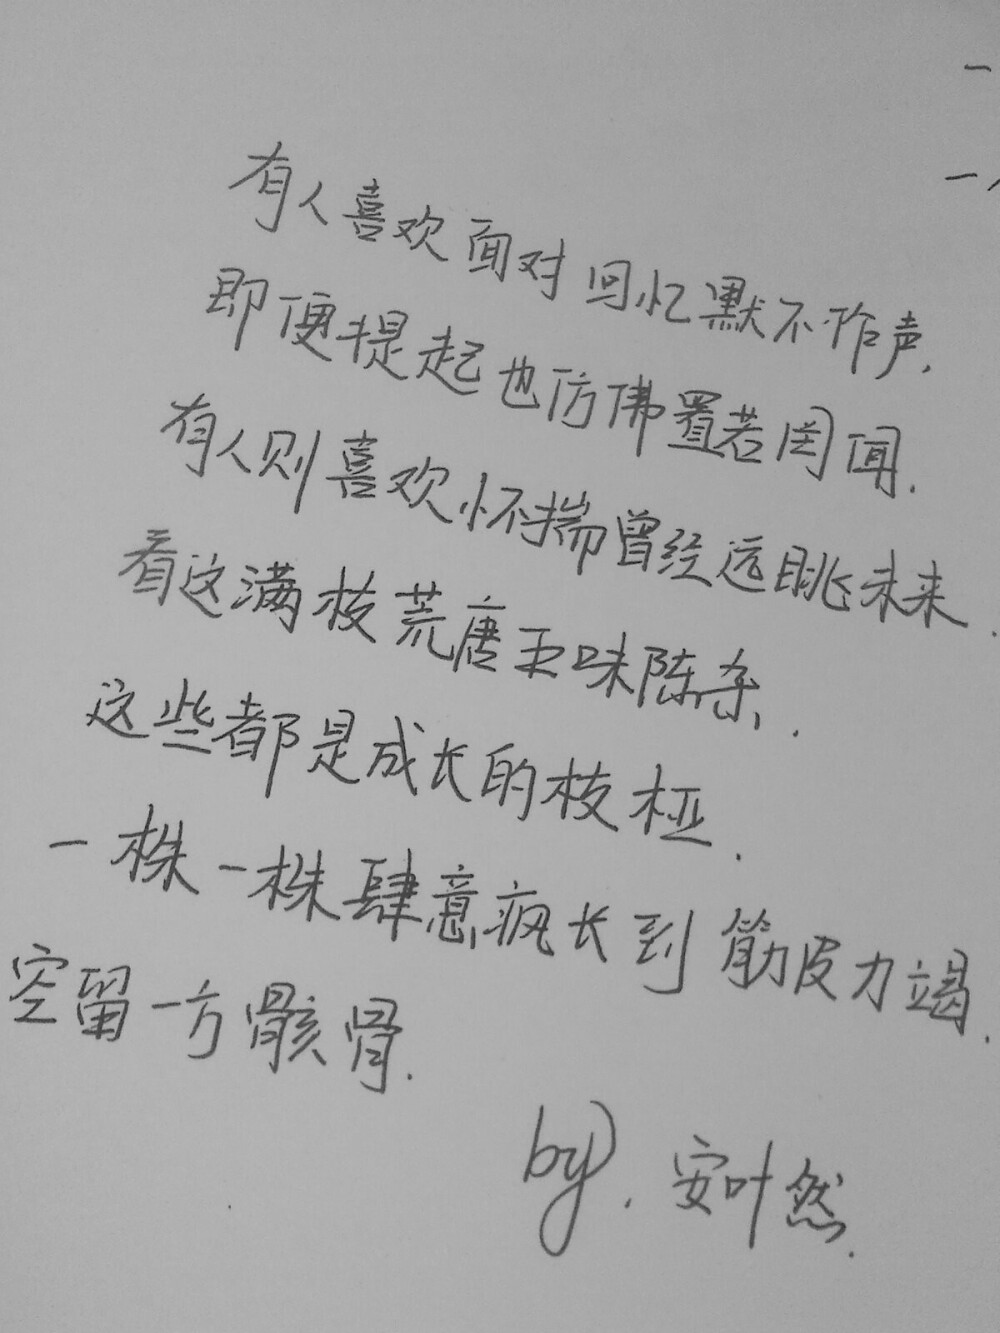 有人喜欢面对回忆默不作声.
即便提起也仿佛置若罔闻.
有人则喜欢怀揣曾经远眺未来.
看这满枝荒唐五味陈杂.
这些都是成长的枝桠.
一株一株肆意疯长到筋皮力竭.
空留一方骸骨.
by. 安叶然.